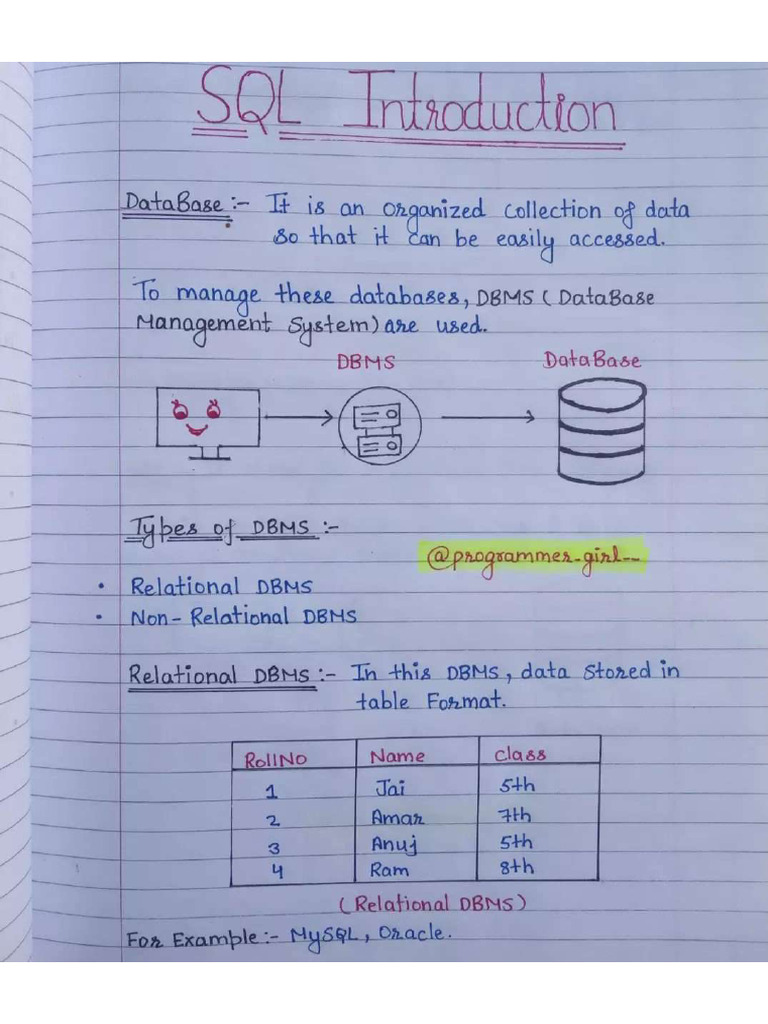 SQL Introduction
DataBase :- It is an organized collection of data
so that it can be easily accessed.
To manage these databases, DBMS (DataBase
Management System) are used.
DBMS DataBase
Types of DBMS :-
@programmer_girl__
• Relational DBMS
• Non-Relational DBMS
Relational DBMS :- In this DBMS, data stored in
table Format.
RollNo Name Class
1 Jai 5th
2 Amar 7th
3 Anuj 5th
4 Ram 8th
(Relational DBMS)
For Example :- MySQL, Oracle.